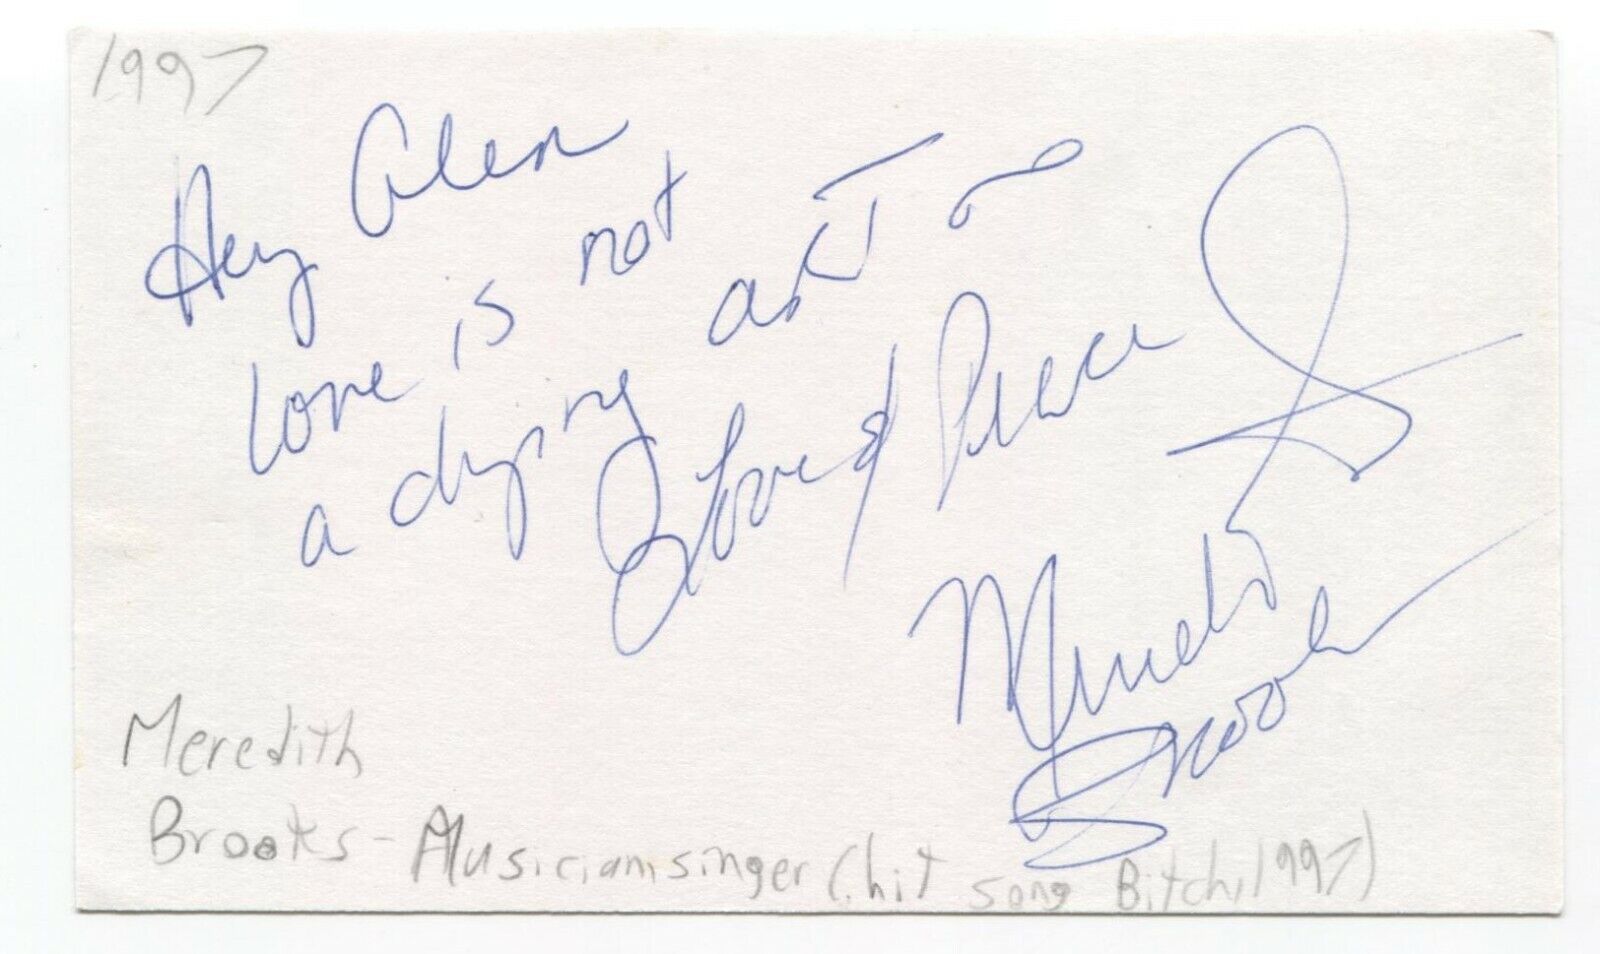 1997
Hey Alen
love is not
a dying art
Love & Peace
Meredith
Brooks
Meredith
Brooks - Musician singer (hit song Bitch, 1997)